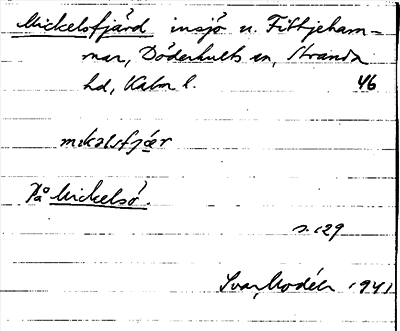 Mickelsfjärd insjö n. Fittjeham-
mar, Döderhults sn, Stranda
hd, Kalm l. 46
mɩkəlsfjær
På Mickelsö.
s. 129
Ivar Modéer 1941